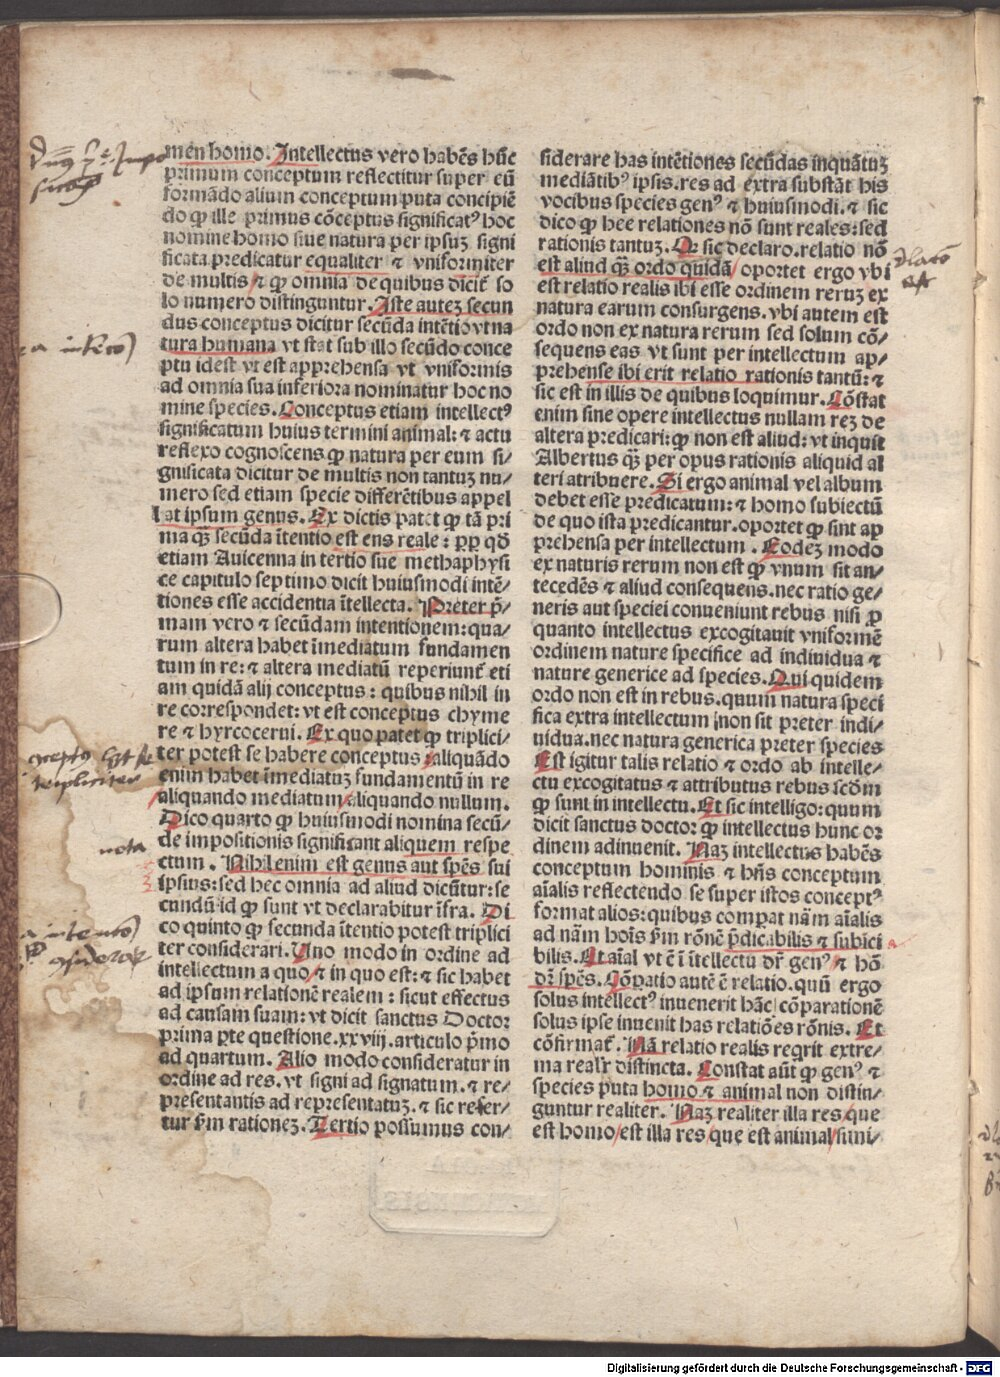 men homo. Intellectus vero habēs hūc
primum conceptum reflectitur super eū
formādo alium conceptum puta concipiē
do ꝙ ille primus cōceptus significatꝰ hoc
nomine homo siue natura per ipsuꝫ signi
ficata predicatur equaliter ⁊ vniformiter
de multis/ ⁊ ꝙ omnia de quibus dicit̄ so
lo numero distinguntur. Iste auteꝫ secun
dus conceptus dicitur secūda intētio vt na
tura humana vt stat sub illo secūdo conce
ptu idest vt est apprehensa vt vniformis
ad omnia sua inferiora nominatur hoc no
mine species. Conceptus etiam intellectꝰ
significatum huius termini animal: ⁊ actu
reflexo cognoscens ꝙ natura per eum si/
gnificata dicitur de multis non tantuꝫ nu/
mero sed etiam specie differētibus appel
lat ipsum genus. Ex dictis patet ꝙ tā pri
ma qꝫ̄ secūda ītentio est ens reale: ꝓꝑ qd̄
etiam Auicenna in tertio sue methaphysi
ce capitulo septimo dicit huiusmodi intē/
tiones esse accidentia ītellecta. Preter p̄/
mam vero ⁊ secūdam intentionem: qua/
rum altera habet īmediatum fundamen
tum in re: ⁊ altera mediatū reperiunt̄ eti
am quidā alij conceptus: quibus nihil in
re correspondet: vt est conceptus chyme
re ⁊ hyrcocerui. Ex quo patet ꝙ triplici/
ter potest se habere conceptus: aliquādo
enim habet īmediatuꝫ fundamentū in re
aliquando mediatum/ aliquando nullum.
Dico quarto ꝙ huiusmodi nomina secū/
de impositionis significant aliquem respe
ctum. Nihil enim est genus aut spēs sui
ipsius: sed hec omnia ad aliud dicūtur: se
cundū id ꝙ sunt vt declarabitur īfra. Di
co quinto ꝙ secunda ītentio potest triplici
ter considerari. Uno modo in ordine ad
intellectum a quo/ ⁊ in quo est: ⁊ sic habet
ad ipsum relationē realem: sicut effectus
ad causam suam: vt dicit sanctus Doctor
prima ꝑte questione.xxviij.articulo p̄mo
ad quartum. Alio modo consideratur in
ordine ad res. vt signi ad signatum. ⁊ re/
presentantis ad representatuꝫ. ⁊ sic refer/
tur s̄m rationeꝫ. Tertio possumus con/
siderare has intētiones secūdas inquātuꝫ
mediātibꝰ ipsis.res ad extra substāt his
vocibus species genꝰ ⁊ huiusmodi. ⁊ sic
dico ꝙ hee relationes nō sunt reales: sed
rationis tantuꝫ. Qr̄ sic declaro. relatio nō
est aliud qꝫ̄ ordo quidā/ oportet ergo vbi
est relatio realis ibi esse ordinem reruꝫ ex
natura earum consurgens. vbi autem est
ordo non ex natura rerum sed solum cō/
sequens eas vt sunt per intellectum ap/
prehense ibi erit relatio rationis tantū: ⁊
sic est in illis de quibus loquimur. Cōstat
enim sine opere intellectus nullam reꝫ de
altera predicari: ꝙ non est aliud: vt inquit
Albertus qꝫ̄ per opus rationis aliquid al
teri attribuere. Si ergo animal vel album
debet esse predicatum: ⁊ homo subiectū
de quo ista predicantur. oportet ꝙ sint ap
prehensa per intellectum. Eodeꝫ modo
ex naturis rerum non est ꝙ vnum sit an/
tecedēs ⁊ aliud consequens. nec ratio ge/
neris aut speciei conueniunt rebus nisi ꝓ
quanto intellectus excogitauit vniformē
ordinem nature specifice ad indiuidua ⁊
nature generice ad species. Qui quidem
ordo non est in rebus. quum natura speci
fica extra intellectum non sit preter indi/
uidua. nec natura generica preter species
Est igitur talis relatio ⁊ ordo ab intelle/
ctu excogitatus ⁊ attributus rebus scd̄m
ꝙ sunt in intellectu. Et sic intelligo: quum
dicit sanctus doctor ꝙ intellectus hunc or
dinem adinuenit. Naꝫ intellectus habēs
conceptum hominis ⁊ hn̄s conceptum
aīalis reflectendo se super istos conceptꝰ
format alios: quibus compat nām aīalis
ad nām hoīs s̄m rōnē p̄dicabilis ⁊ subici
bilis. Et aīal vt ē ī ītellectu dr̄ genꝰ ⁊ hō
dr̄ spēs. Cōꝑatio autē ē relatio. quū ergo
solus intellectꝰ inuenerit hāc cōparationē
solus ipse inuenit has relatiōes rōnis. Et
cōfirmat̄. Nā relatio realis reqrit extre/
ma realr̄ distincta. Constat aūt ꝙ genꝰ ⁊
species puta homo ⁊ animal non distin/
guntur realiter. Naꝫ realiter illa res/ que
est homo/ est illa res/ que est animal/ simi/
nota
Digitalisierung gefördert durch die Deutsche Forschungsgemeinschaft - DFG